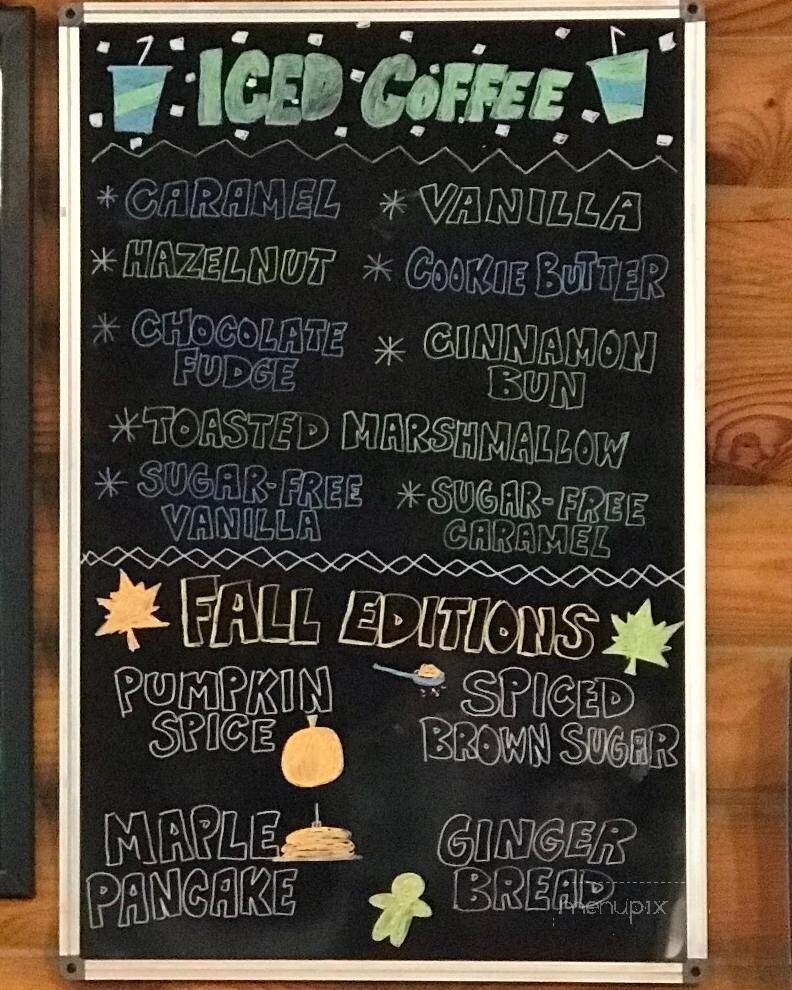 ICED COFFEE
* CARAMEL * VANILLA
* HAZELNUT * COOKIE BUTTER
* CHOCOLATE FUDGE
* CINNAMON BUN
* TOASTED MARSHMALLOW
* SUGAR-FREE VANILLA
* SUGAR-FREE CARAMEL
FALL EDITIONS
PUMPKIN
SPICE
SPICED
BROWN SUGAR
MAPLE
PANCAKE
GINGER
BREAD
menupix